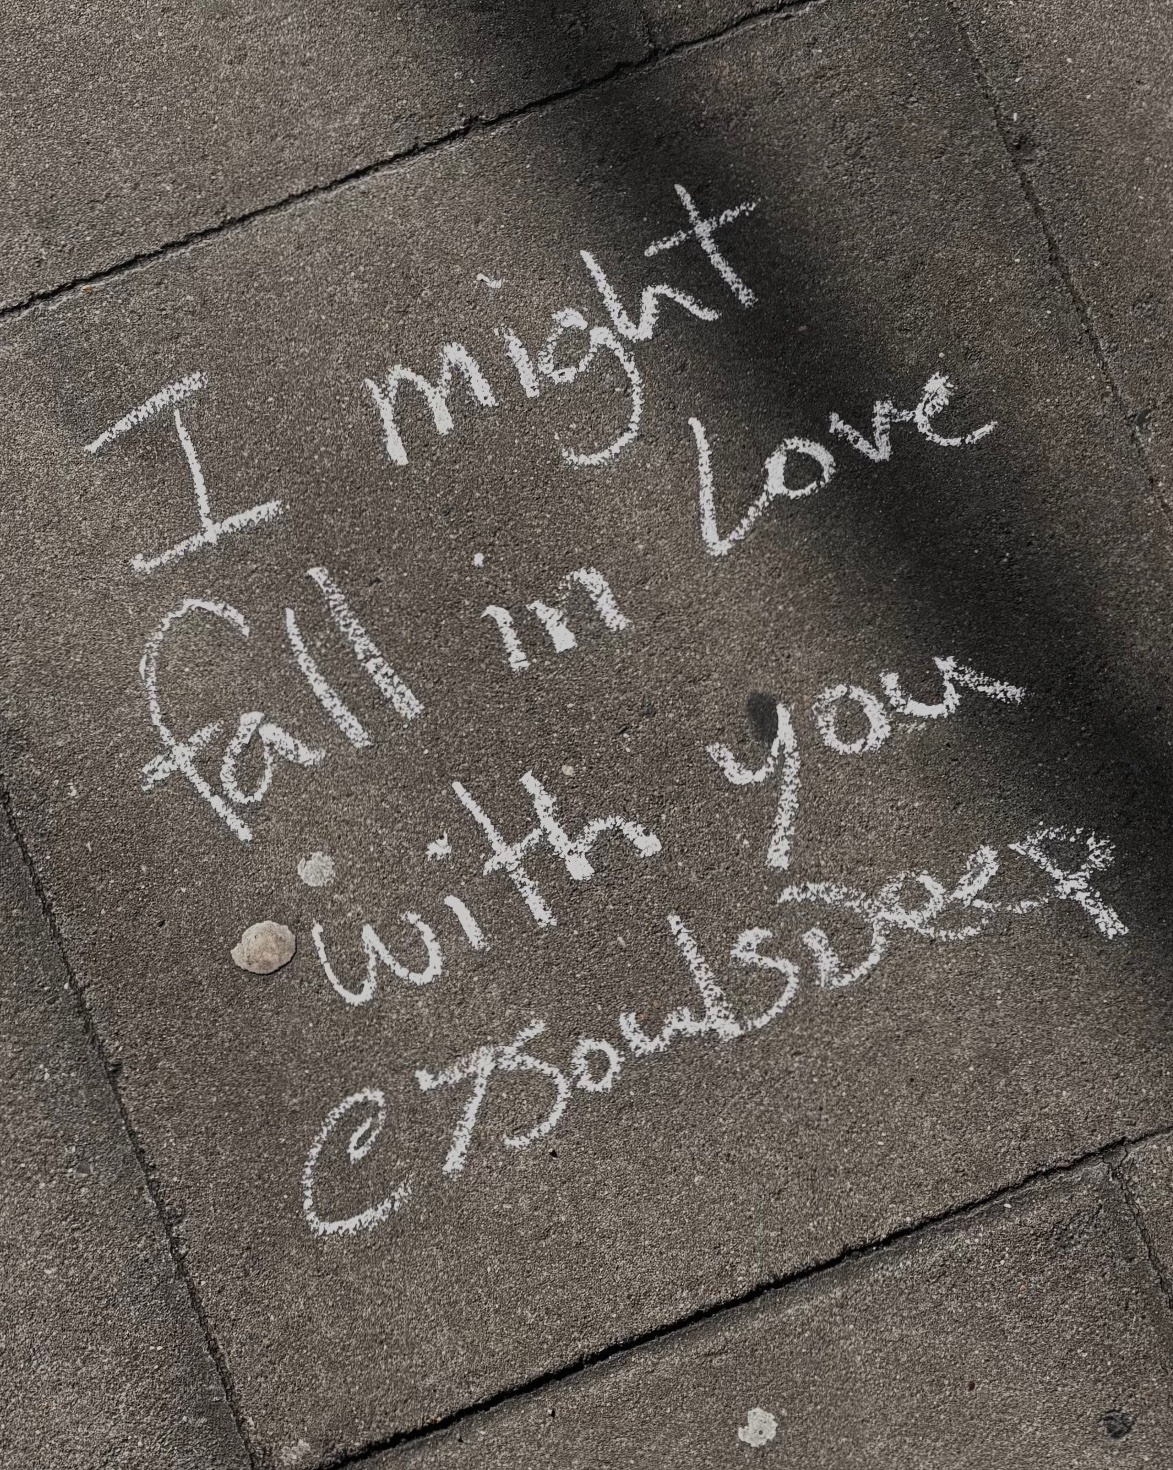 I might
fall in Love
with you
@TSoulsDeep